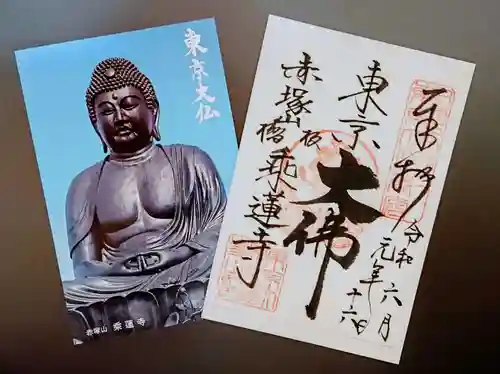 東京大仏
赤塚山 乗蓮寺
奉拝
令和元年六月十六日
東京
大佛
赤塚山
板橋
乗蓮寺